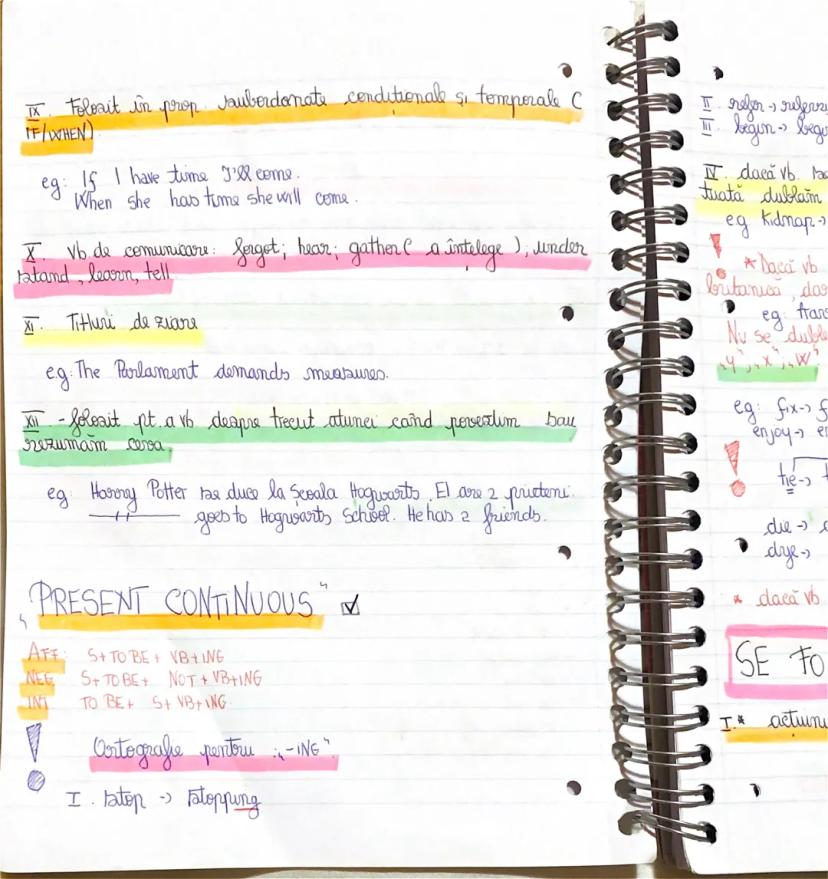 IX. Folosit în prop. subordonate condiționale și temporale (
IF/WHEN)
eg: If I have time I'll come.
When she has time she will come.
X. Vb de comunicare: forget; hear; gather ( a înțelege ); under
stand, learn, tell
XI. Titluri de ziare
eg: The Parlament demands measures.
XII - folosit pt. a vb despre trecut atunci când povestim sau
rezumăm ceva.
eg: Harry Potter se duce la Școala Hogwarts. El are 2 prieteni.
—//— goes to Hogwarts School. He has 2 friends.
„PRESENT CONTINUOUS" ☑
AFF: S+ TO BE + VB+ING
NEG S+ TO BE + NOT + VB+ING
INT TO BE + S+ VB+ING
! Ortografie pentru „-ING"
I. stop -> stopping
II refer -> referr
III. begin -> begi
IV. dacă vb.
tuată dublăm
eg Kidnap ->
! * Dacă vb
britanică, da
eg: tra
Nu se duble
„y", „x", „w"
eg: fix -> f
enjoy -> e
! tie ->
die ->
dye ->
* dacă vb
SE FO
I. * acțiuni